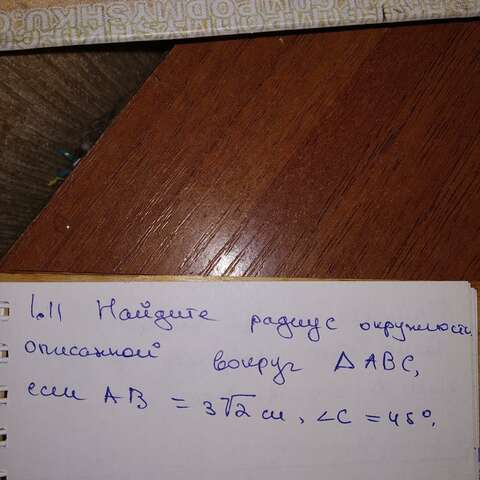 COMPODMYSHKU
1.11 Найдите радиус окружности,
описанной вокруг △ ABC,
если AB = 3√2 см, ∠C = 45°.